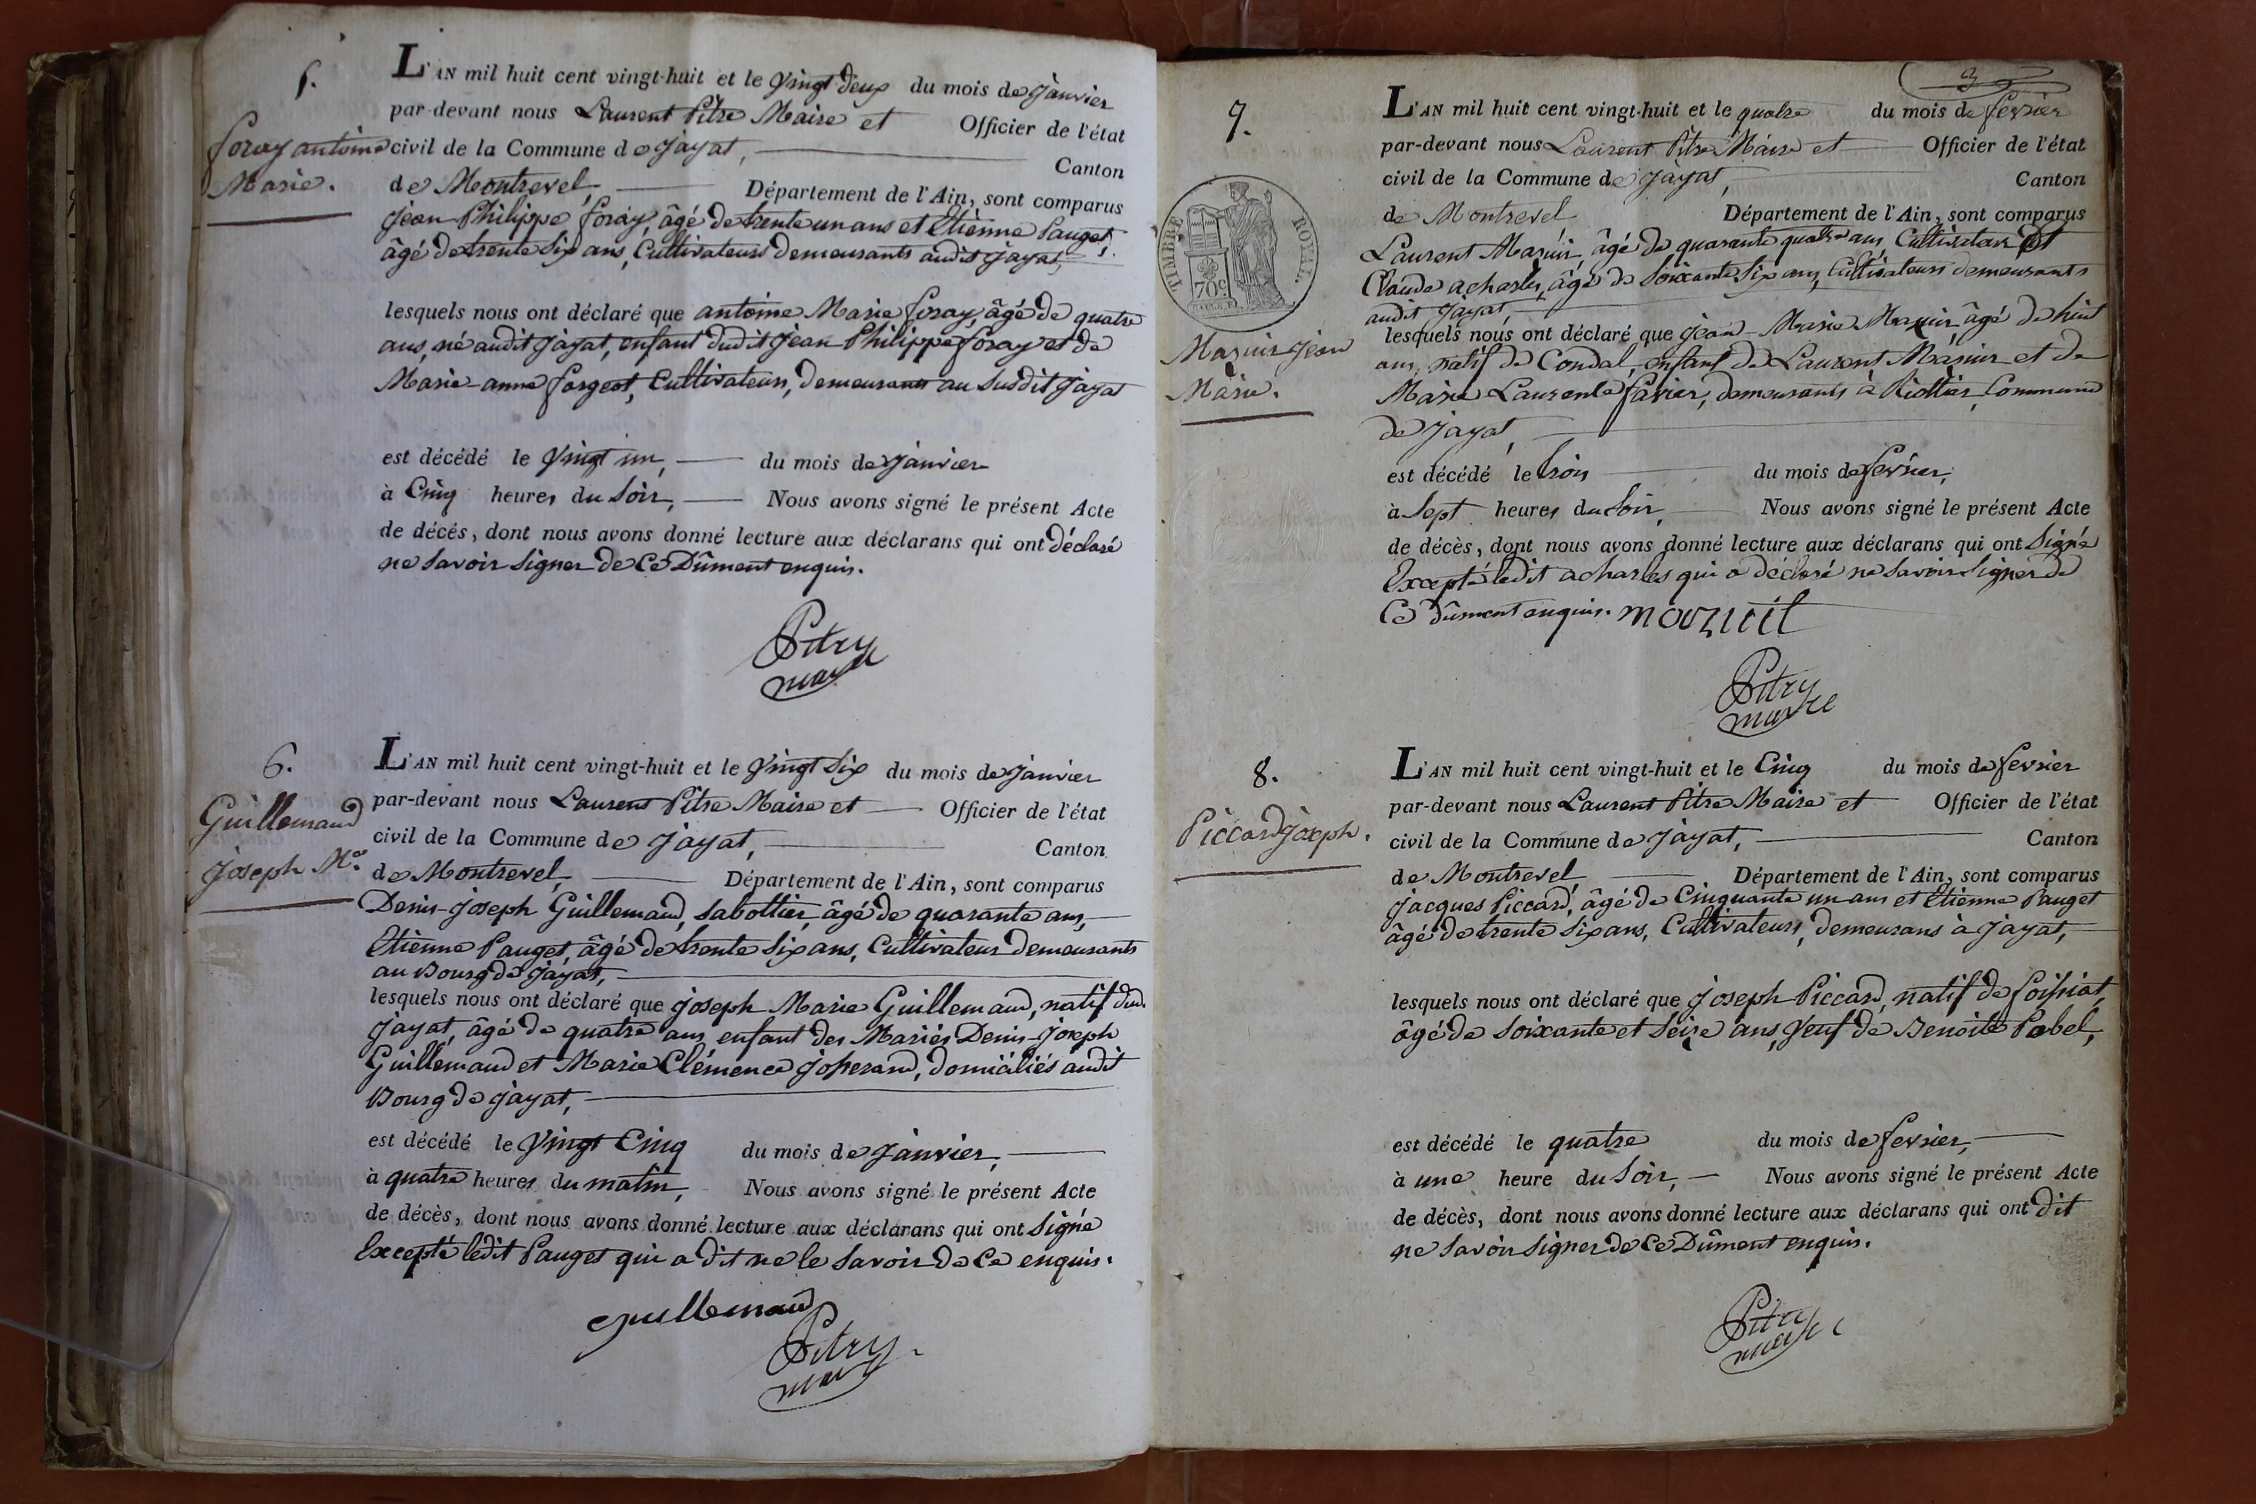 5.
L'AN mil huit cent vingt-huit et le vingt deux du mois de janvier
par-devant nous Laurent Pitre Maire et Officier de l'état
foray antoine
Marie.
civil de la Commune de jayat, Canton
de Montrevel, Département de l'Ain, sont comparus
jean Philippe foray, âgé de trente un ans et Etienne Pauget,
âgé de trente six ans, Cultivateurs demeurants audit jayat,
lesquels nous ont déclaré que antoine Marie foray, âgé de quatre
ans, né audit jayat, enfant dudit jean Philippe foray et de
Marie-anne forgeot, Cultivateurs, demeurants au susdit jayat
est décédé le vingt un, du mois de janvier
à Cinq heures du soir, Nous avons signé le présent Acte
de décés, dont nous avons donné lecture aux déclarans qui ont déclaré
ne savoir signer de Ce Dûment enquis.
Pitre
maire
6.
Guillemaud
joseph Me.
L'AN mil huit cent vingt-huit et le vingt six du mois de janvier
par-devant nous Laurent Pitre Maire et Officier de l'état
civil de la Commune de jayat, Canton
de Montrevel, Département de l'Ain, sont comparus
Denis-joseph Guillemaud, sabottier, âgé de quarante ans,
Etienne Pauget, âgé de trente six ans, Cultivateur demeurants
au Bourg de jayat,
lesquels nous ont déclaré que joseph Marie Guillemaud, natif dud.
jayat, âgé de quatre ans, enfant des Mariés Denis-joseph
Guillemaud et Marie Clémence josserand, domiciliés audit
Bourg de jayat,
est décédé le vingt Cinq du mois de janvier,
à quatre heures du matin, Nous avons signé le présent Acte
de décès, dont nous avons donné lecture aux déclarans qui ont signé
Excepté ledit Pauget qui a dit ne le savoir de Ce enquis.
guillemaud
Pitre
maire
3
7.
L'AN mil huit cent vingt-huit et le quatre du mois de fevrier
par-devant nous Laurent Pitre Maire et Officier de l'état
civil de la Commune de jayat, Canton
de Montrevel Département de l'Ain, sont comparus
TIMBRE ROYAL.
70c
Laurent Mazuir, âgé de quarante quatre ans, Cultivateur Et
Claude acharles, âgé de soixante six ans, Cultivateurs demeurants
audit jayat,
Mazuir jean
Marie.
lesquels nous ont déclaré que jean-Marie Mazuir âgé de huit
ans, natif de Condal, enfant de Laurent Mazuir et de
Marie Laurente favier, demeurants à Riottier, Commune
de jayat,
est décédé le trois du mois de fevrier,
à sept heures du soir, Nous avons signé le présent Acte
de décès, dont nous avons donné lecture aux déclarans qui ont signé
Excepté ledit acharles qui a déclaré ne savoir signer de
Ce dûment enquis. mazuir
Pitre
maire
8.
Piccard joseph.
L'AN mil huit cent vingt-huit et le Cinq du mois de fevrier
par-devant nous Laurent Pitre Maire et Officier de l'état
civil de la Commune de jayat, Canton
de Montrevel Département de l'Ain, sont comparus
jacques Piccard, âgé de Cinquante un ans et Etienne Pauget
âgé de trente six ans, Cultivateurs, demeurans à jayat,
lesquels nous ont déclaré que joseph Piccard, natif de foissiat,
âgé de soixante et seize ans, Veuf de Benoite Pobel,
est décédé le quatre du mois de fevrier,
à une heure du soir, Nous avons signé le présent Acte
de décès, dont nous avons donné lecture aux déclarans qui ont dit
ne savoir signer de Ce Dûment enquis.
Pitre
maire